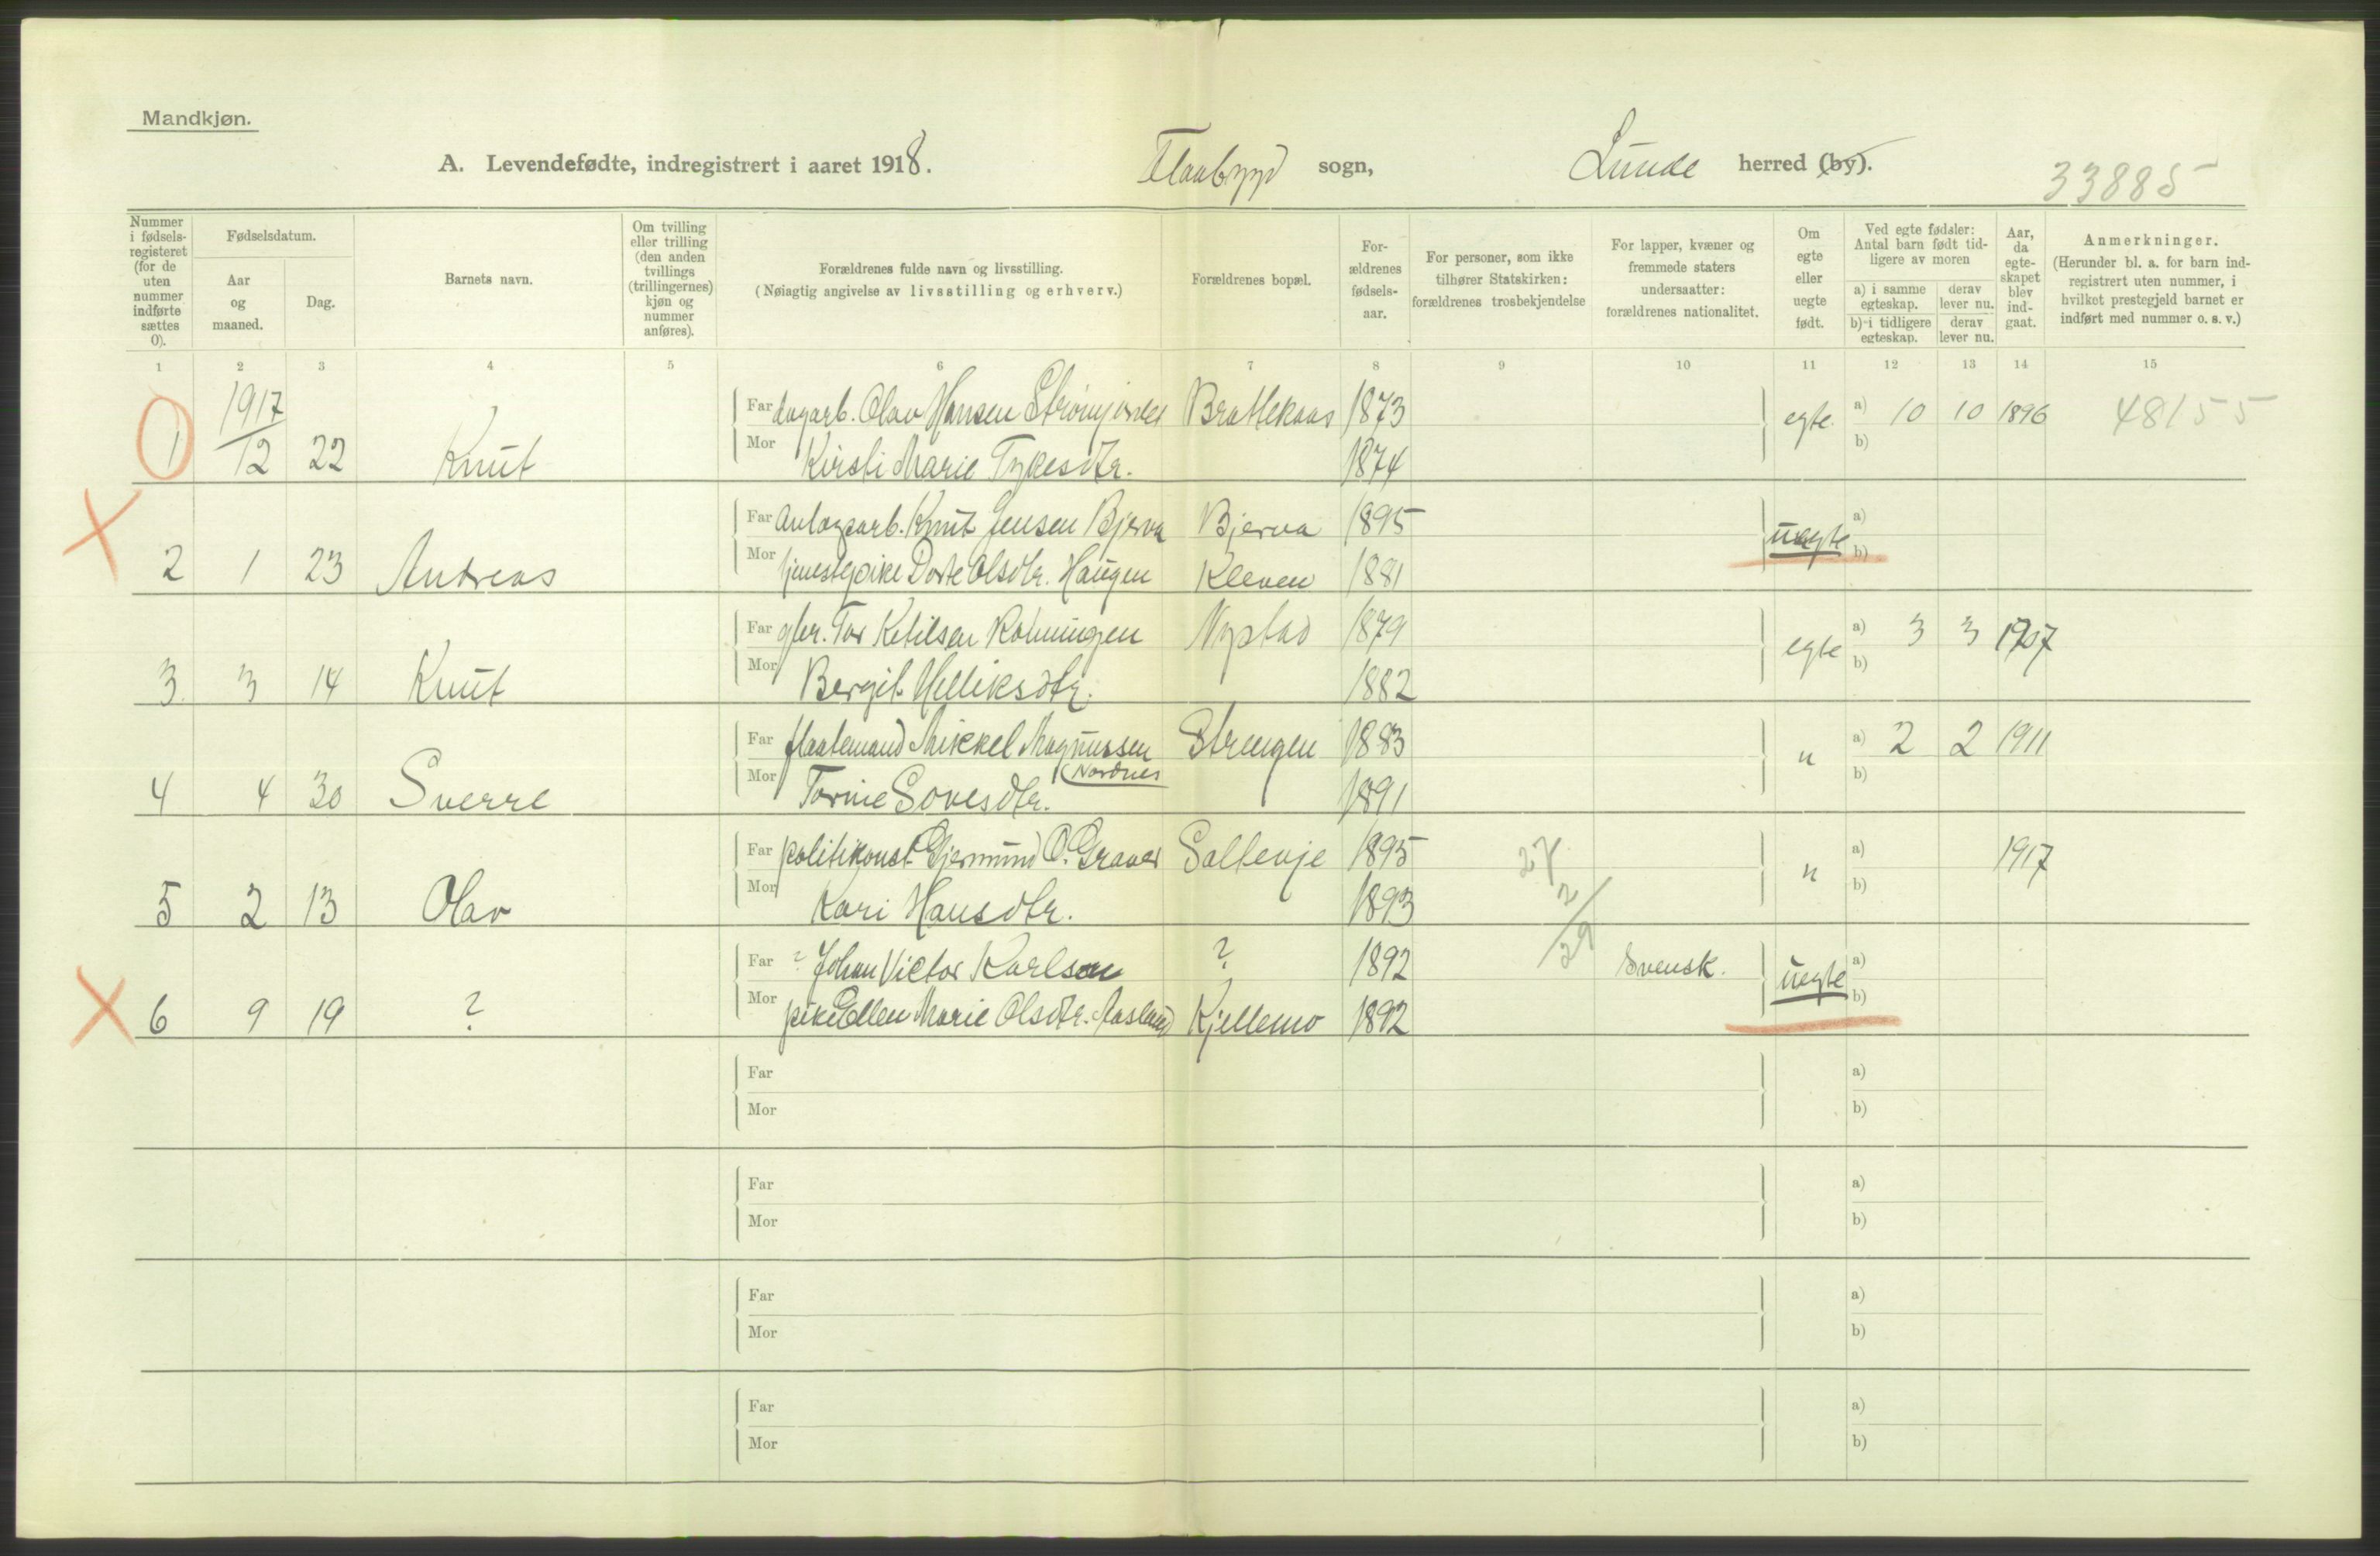 Mandkjøn.
A. Levendefødte, indregistrert i aaret 1918. Flaabygd sogn, Lunde herred (by). 33885
Nummer i fødselsregisteret (for de uten nummer indførte sættes 0).
Fødselsdatum.
Aar og maaned.
Dag.
Barnets navn.
Om tvilling eller trilling (den anden tvillings (trillingernes) kjøn og nummer anføres).
Forældrenes fulde navn og livsstilling.
(Nøiagtig angivelse av livsstilling og erhverv.)
Forældrenes bopæl.
Forældrenes fødselsaar.
For personer, som ikke tilhører Statskirken: forældrenes trosbekjendelse
For lapper, kvæner og fremmede staters undersaatter: forældrenes nationalitet.
Om egte eller uegte født.
Ved egte fødsler: Antal barn født tidligere av moren
a) i samme egteskap. derav lever nu.
b) i tidligere egteskap. derav lever nu.
Aar, da egteskapet blev indgaat.
Anmerkninger.
(Herunder bl. a. for barn indregistrert uten nummer, i hvilket prestegjeld barnet er indført med nummer o. s. v.)
1 2 3 4 5 6 7 8 9 10 11 12 13 14 15
1917
Far dagarb. Olav Hansen Brattekaas 1873 egte. a) 10 10 1896 48155
1 12 22 Knut Mor Kirsti Marie 1874 b)
Far Anlægsarb. Knut Jensen Bjerva Bjerva 1895 uegte a)
2 1 23 Andreas Mor tjenestepike Dorte Olsdtr. Haugen Kleven 1881 b)
Far gbr. Tor Ketilsen Nystad 1879 egte a) 3 3 1907
3 3 14 Knut Mor Bergit Helliksdtr. 1882 b)
Far Mikkel Magnussen Strengen 1883 " a) 2 2 1911
(Nordnes
4 4 30 Sverre Mor Tornie Sovesdtr. 1891 b)
Far politikonst. Gjermund O. Graver 1895 27 " a) 1917
5 2 13 Olav Mor Kari Hansdtr. 1893 2/29 b)
Far ? Johan Victor Karlsen ? 1892 Svensk. uegte a)
6 9 19 ? Mor pike Ellen Marie Olsdtr. Aasland Kjellemo 1892 b)
Far a)
Mor b)
Far a)
Mor b)
Far a)
Mor b)
Far a)
Mor b)